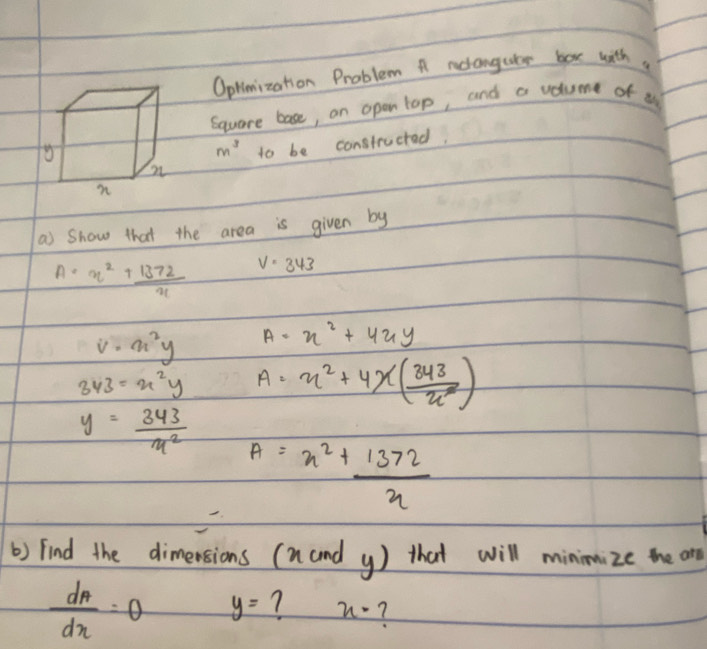 Optimization Problem A rectangular box with a
Square base, an open top, and a volume of
m³ to be constructed.
y
x
x
a) Show that the area is given by
A = x² + 1372/x V = 343
V = x²y A = x² + 4xy
343 = x²y A = x² + 4x(343/x²)
y = 343/x²
A = x² + 1372/x
b) Find the dimensions (x and y) that will minimize the area
dA/dx = 0 y = ? x = ?